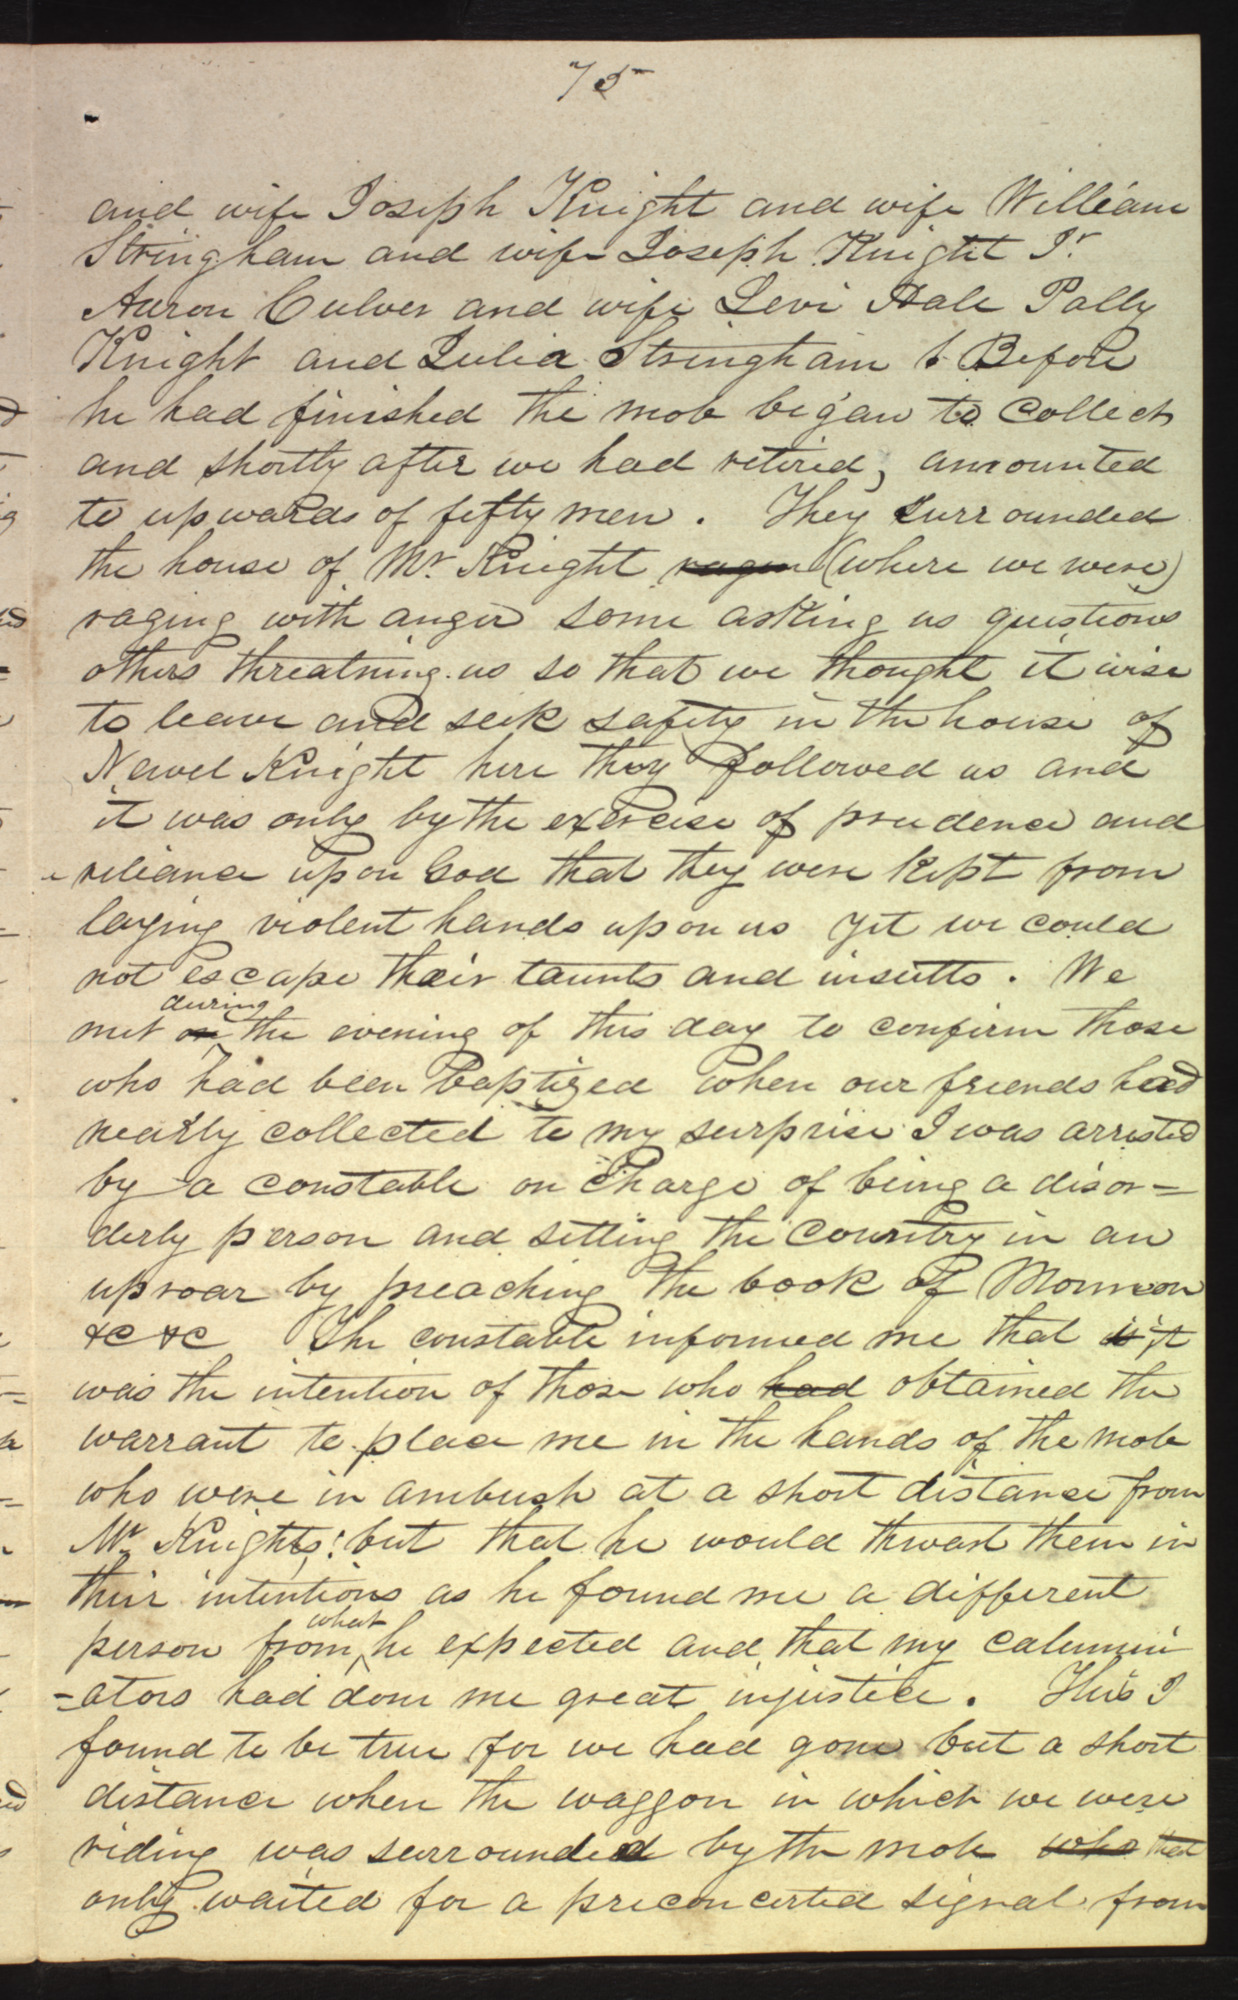 75
and wife Joseph Knight and wife William
Stringham and wife Joseph Knight Jr
Aaron Culver and wife Levi Hale Polly
Knight and Julia Stringham Before
he had finished the mob began to collect
and shortly after we had retired, amounted
to upwards of fifty men. They surrounded
the house of Mr. Knight ragen (where we were)
raging with anger some asking us questions
others threatning us so that we thought it wise
to leave and seek safety in the house of
Newel Knight here they followed us and
it was only by the exercise of prudence and
reliance upon God that they were kept from
laying violent hands upon us yet we could
not escape their taunts and insults. We
during
met on the evening of this day to confirm those
who had been baptized when our friends had
nearly collected to my surprise I was arrested
by a constable on charge of being a disor=
derly person and setting the country in an
uproar by preaching the book of Mormon
&C &C The constable informed me that is it
was the intention of those who had obtained the
warrant to place me in the hands of the mob
who were in ambush at a short distance from
Mr Knights; but that he would thwart them in
their intentions as he found me a different
what
person from he expected and that my calumni
=ators had done me great injustice. This I
found to be true for we had gone but a short
distance when the waggon in which we were
riding was surrounded by the mob who that
only waited for a preconcerted signal from